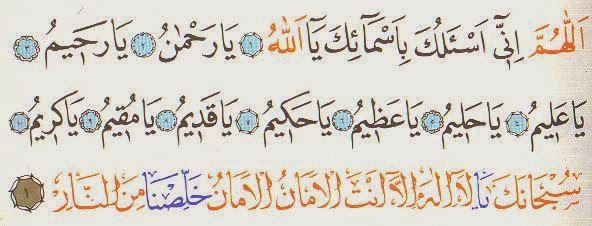 اَللّٰهُمَّ اِنّ۪ٓي اَسْئَلُكَ بِاَسْمَٓائِكَ يَٓا اَللّٰهُ ﴿١﴾ يَا رَحْمٰنُ ﴿٢﴾ يَا رَح۪يمُ ﴿٣﴾
يَا عَل۪يمُ ﴿٤﴾ يَا حَل۪يمُ ﴿٥﴾ يَا عَظ۪يمُ ﴿٦﴾ يَا حَك۪يمُ ﴿٧﴾ يَا قَد۪يمُ ﴿٨﴾ يَا مُق۪يمُ ﴿٩﴾ يَا كَر۪يمُ ﴿١٠﴾
سُبْحَانَكَ يَا لَٓا اِلٰهَ اِلَّٓا اَنْتَ الْاَمَانُ الْاَمَانُ خَلِّصْنَا مِنَ النَّارِ ﴿١﴾